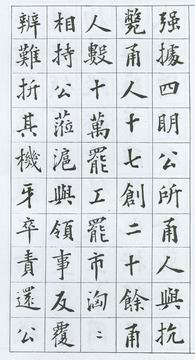 强據四明公所甬人與抗
斃甬人十七創二十餘甬
人數十萬罷工罷市洶〻
相持公蒞滬與領事反覆
辨難折其機牙卒責還公